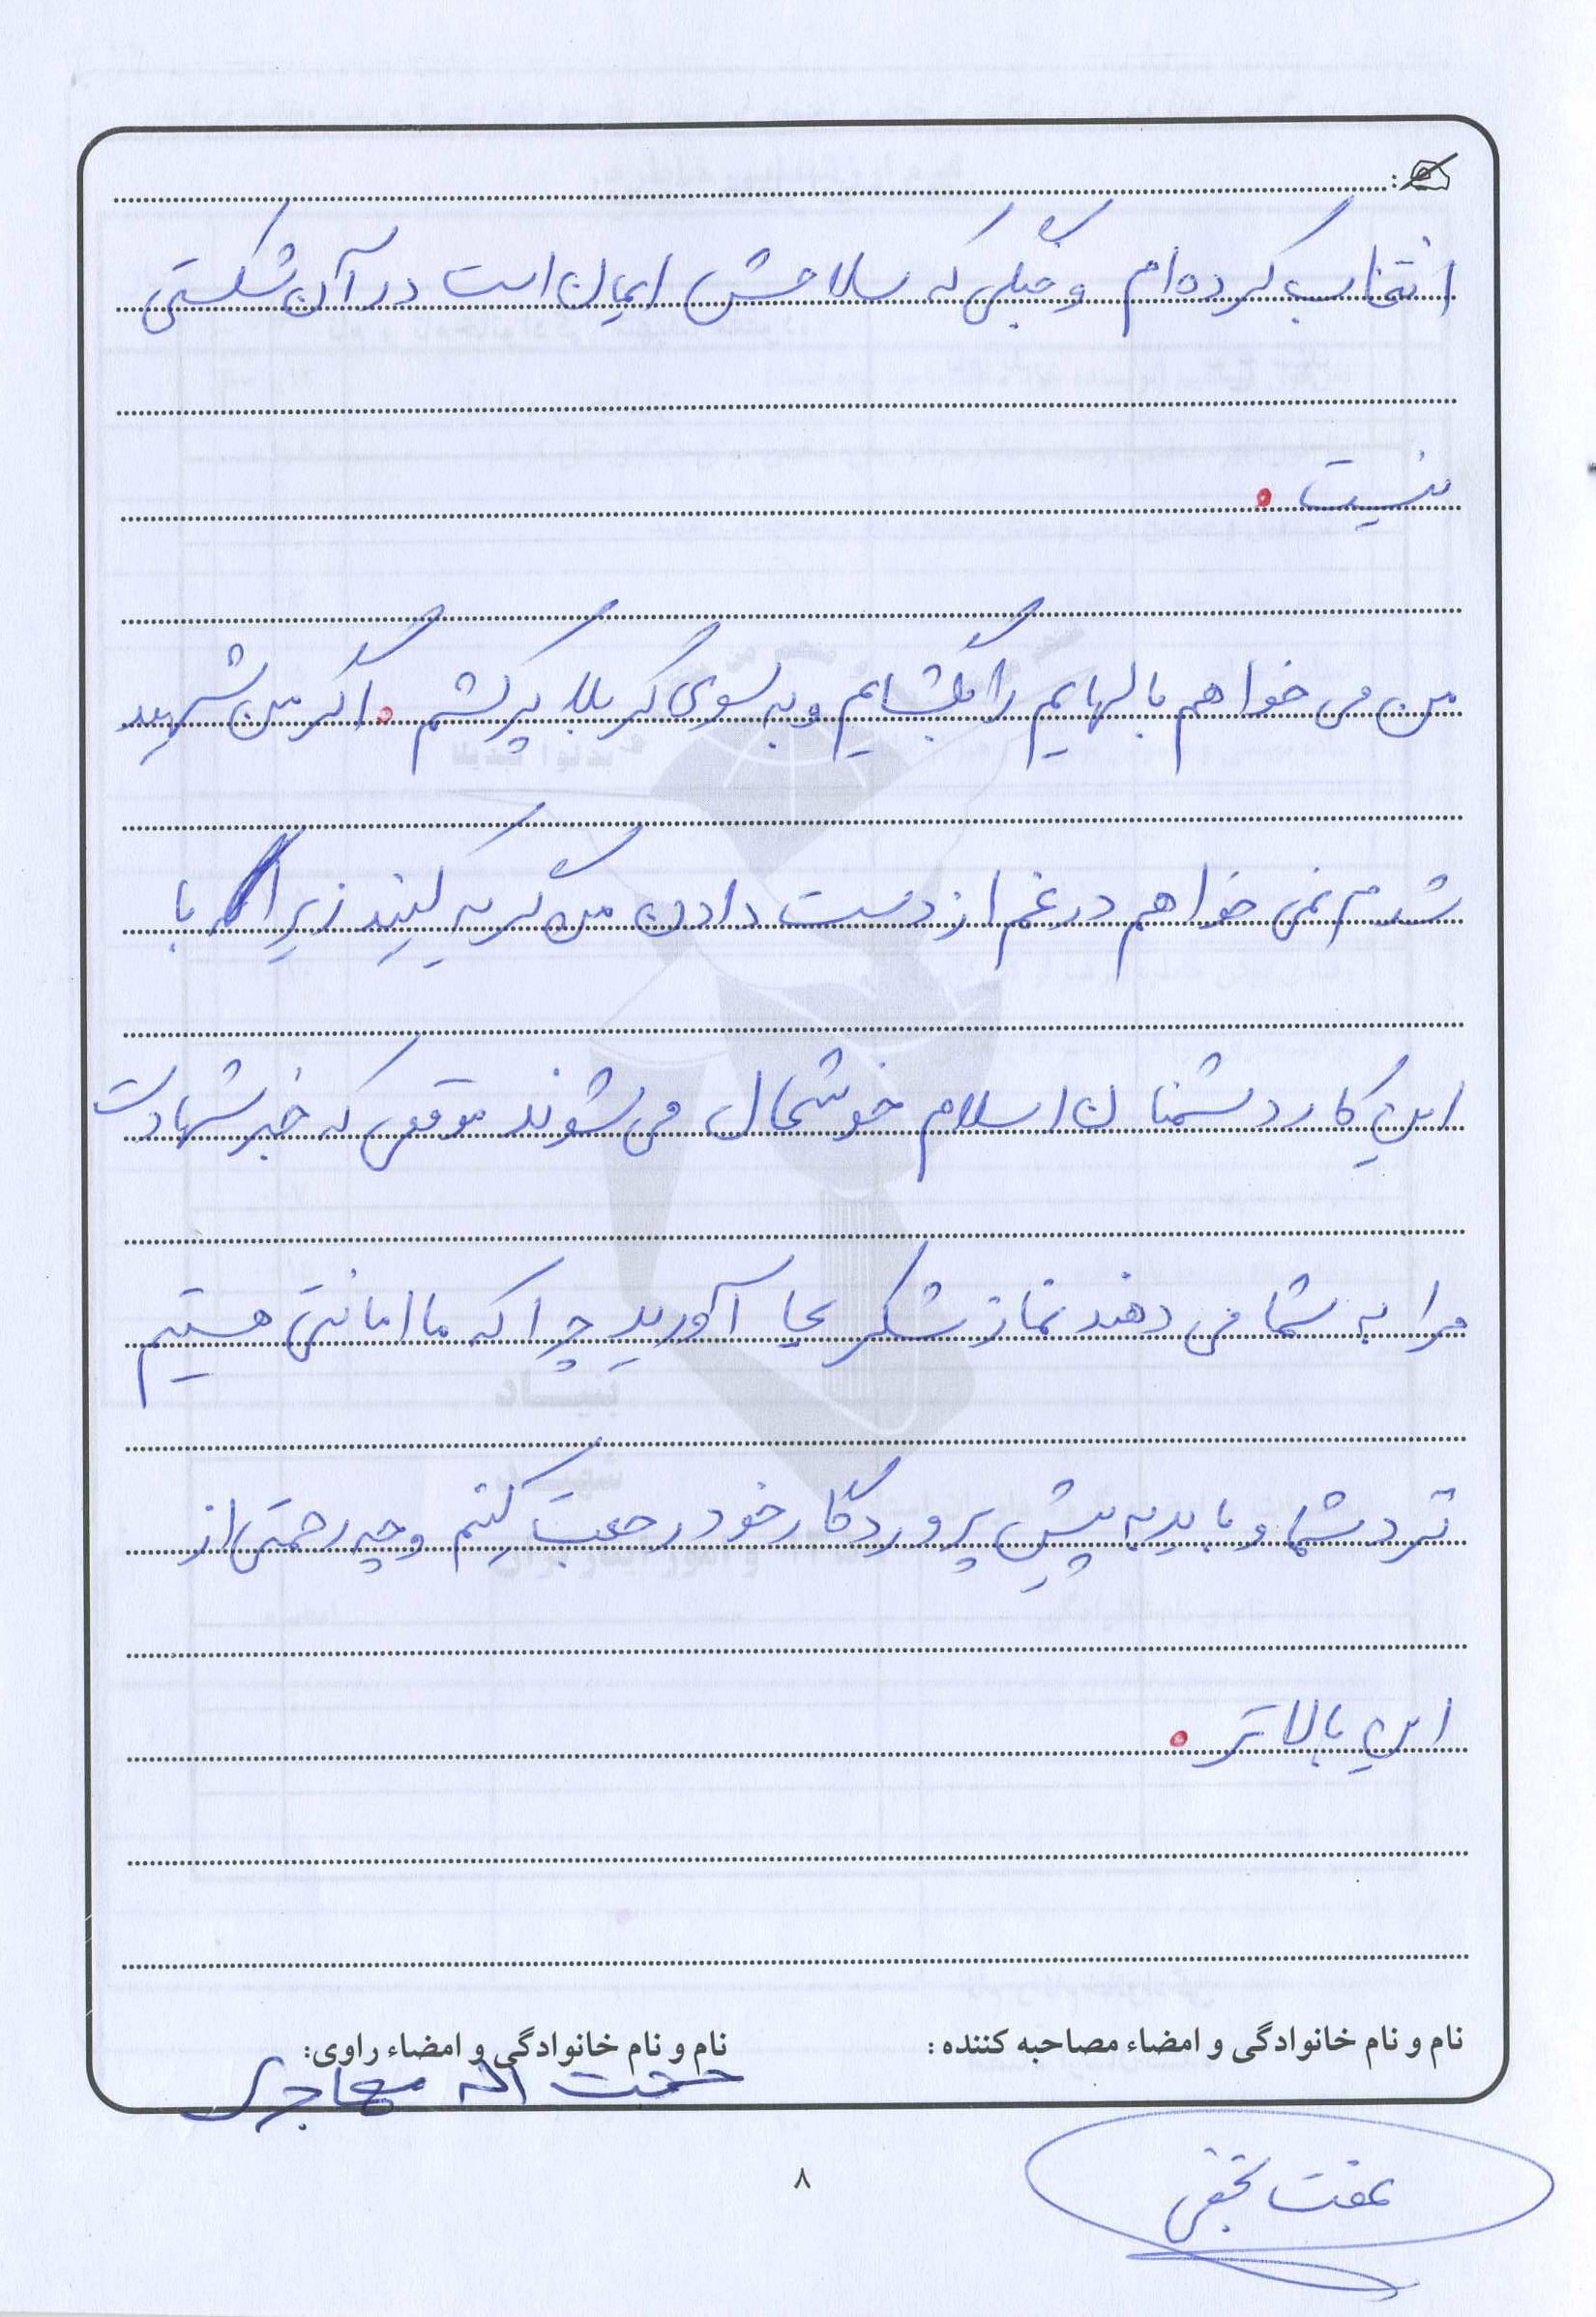 انتخاب کرده‌ام و جنگی که سلاحش ایمان است در آن شکستی
نیست .
من می خواهم بالهایم را بگشایم و به سوی کربلا پر کشم . اگر من شهید
شدم نمی خواهم در غم از دست دادن من گریه کنید زیرا با
این کار دشمنان اسلام خوشحال می شوند موقعی که خبر شهادت
مرا به شما می دهند نماز شکر بجا آورید چرا که ما امانتی هستیم
نزد شما و باید به پیش پروردگار خود رجعت کنیم و چه رحمتی از
این بالاتر .
نام و نام خانوادگی و امضاء مصاحبه کننده :
نام و نام خانوادگی و امضاء راوی:
حجت اله مهاجری
عفت نجفی
۸